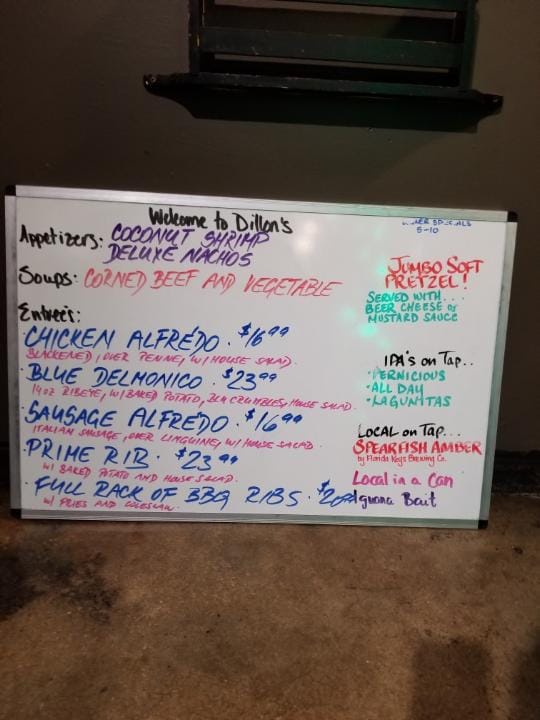 Welcome to Dillon's
Appetizers: COCONUT SHRIMP
DELUXE NACHOS
Soups: CORNED BEEF AND VEGETABLE
Entree's:
·CHICKEN ALFREDO · $16⁹⁹
BLACKENED, OVER PENNE, W/ HOUSE SALAD.
·BLUE DELMONICO · $23⁹⁹
14oz RIBEYE, W/ BAKED POTATO, BLU CRUMBLES, HOUSE SALAD.
·SAUSAGE ALFREDO · $16⁹⁹
ITALIAN SAUSAGE, OVER LINGUINE, W/ HOUSE SALAD.
·PRIME RIB · $23⁹⁹
W/ BAKED POTATO AND HOUSE SALAD.
·FULL RACK OF BBQ RIBS ·
W/ FRIES AND COLESLAW.
5-10
JUMBO SOFT
PRETZEL!
SERVED WITH....
BEER CHEESE or
MUSTARD SAUCE
IPA's on Tap..
·PERNICIOUS
·ALL DAY
·LAGUNITAS
LOCAL on Tap...
SPEARFISH AMBER
by Florida Keys Brewing Co.
Local in a Can
Iguana Bait